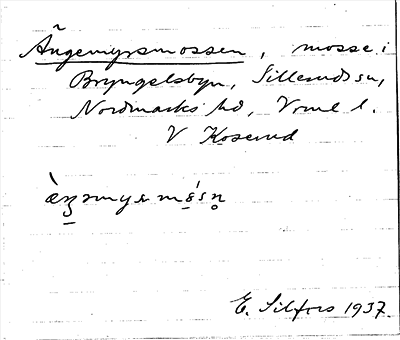 Ängemyrsmossen, mosse i
Bryngelsbyn, Sillerudssn,
Nordmarks hd, Vrml l.
V Koserud
E. Silfors 1937.